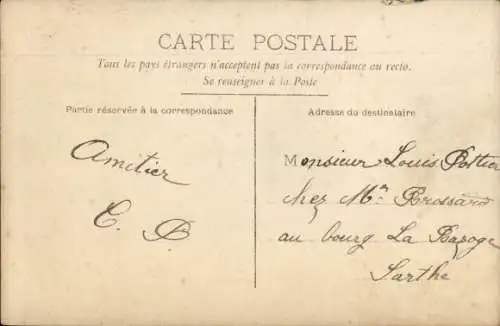 CARTE POSTALE
Tous les pays étrangers n'acceptent pas la correspondance au recto.
Se renseigner à la Poste
Partie réservée à la correspondance
Adresse du destinataire
Amitier
C. P
Monsieur Louis Pottier
chez Mr Brossard
au bourg La Bazoge
Sarthe